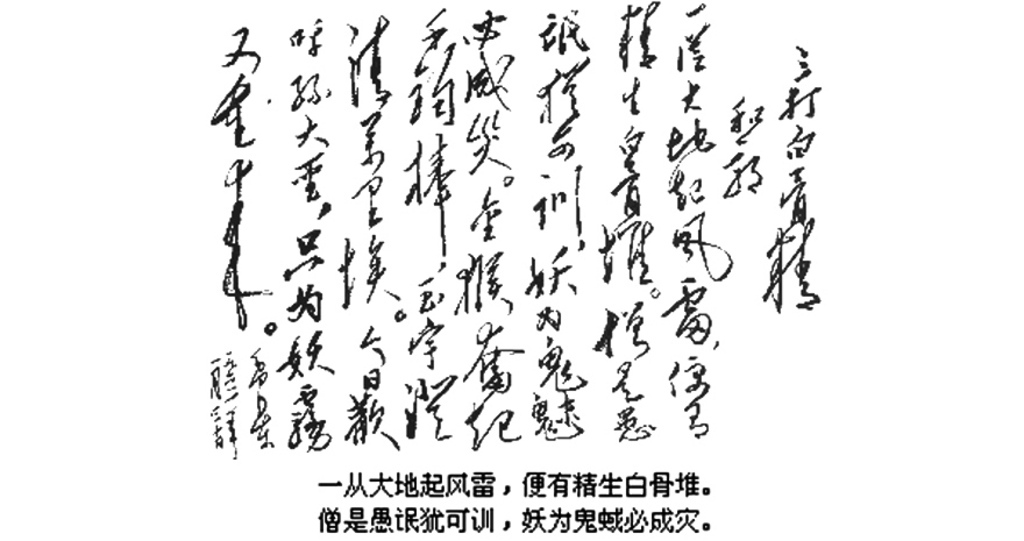 三打白骨精
和郭
一從大地起风雷，便有
精生白骨堆。僧是愚
氓猶可訓，妖为鬼魅
必成災。金猴奋起
千鈞棒，玉宇澄
清萬里埃。今日歡
呼孫大聖，只为妖霧
又重来。
一从大地起风雷，便有精生白骨堆。
僧是愚氓犹可训，妖为鬼蜮必成灾。